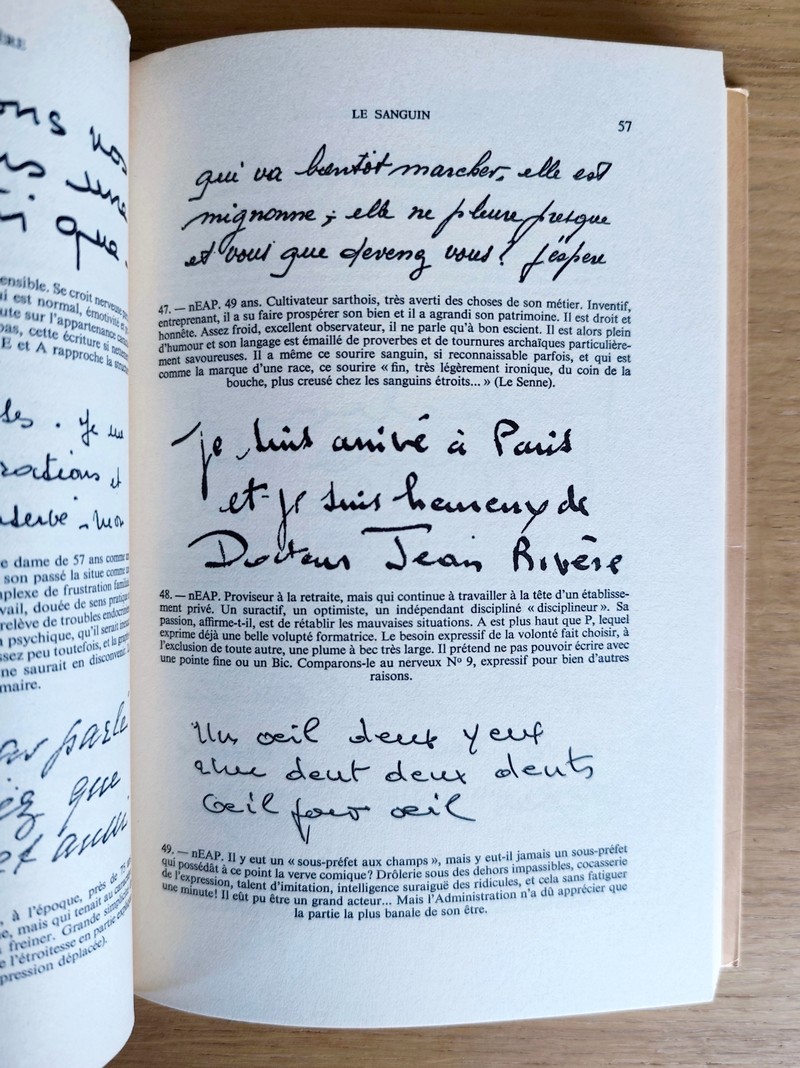 ÈRE
ons nos
us une
i que.
ensible. Se croit nerveuse
ui est normal, émotivité et
ute sur l'appartenance
pas, cette écriture si
E et A rapproche la
les. Je
rations et
nserve mon
e dame de 57 ans comme
son passé la situe comme
mplexe de frustration
vail, douée de sens pratique
relève de troubles
n psychique, qu'il serait
ssez peu toutefois, et la
ne saurait en disconvenir.
maire.
as parlé
ez que
et aussi
, à l'époque, près de 75 ans
e, mais qui tenait au
freiner. Grande
e l'étroitesse en partie
pression déplacée).
LE SANGUIN
57
qui va bientôt marcher, elle est
mignonne ; elle ne pleure presque
et vous que devenez vous ? J'espère
47. — nEAP. 49 ans. Cultivateur sarthois, très averti des choses de son métier. Inventif,
entreprenant, il a su faire prospérer son bien et il a agrandi son patrimoine. Il est droit et
honnête. Assez froid, excellent observateur, il ne parle qu'à bon escient. Il est alors plein
d'humour et son langage est émaillé de proverbes et de tournures archaïques particulière-
ment savoureuses. Il a même ce sourire sanguin, si reconnaissable parfois, et qui est
comme la marque d'une race, ce sourire « fin, très légèrement ironique, du coin de la
bouche, plus creusé chez les sanguins étroits... » (Le Senne).
Je suis arrivé à Paris
et je suis heureux de
Docteur Jean Rivère
48. — nEAP. Proviseur à la retraite, mais qui continue à travailler à la tête d'un établisse-
ment privé. Un suractif, un optimiste, un indépendant discipliné « disciplineur ». Sa
passion, affirme-t-il, est de rétablir les mauvaises situations. A est plus haut que P, lequel
exprime déjà une belle volupté formatrice. Le besoin expressif de la volonté fait choisir, à
l'exclusion de toute autre, une plume à bec très large. Il prétend ne pas pouvoir écrire avec
une pointe fine ou un Bic. Comparons-le au nerveux Nº 9, expressif pour bien d'autres
raisons.
Un œil deux yeux
une dent deux dents
Œil pour œil
49. — nEAP. Il y eut un « sous-préfet aux champs », mais y eut-il jamais un sous-préfet
qui possédât à ce point la verve comique? Drôlerie sous des dehors impassibles, cocasserie
de l'expression, talent d'imitation, intelligence suraiguë des ridicules, et cela sans fatiguer
une minute! Il eût pu être un grand acteur... Mais l'Administration n'a dû apprécier que
la partie la plus banale de son être.